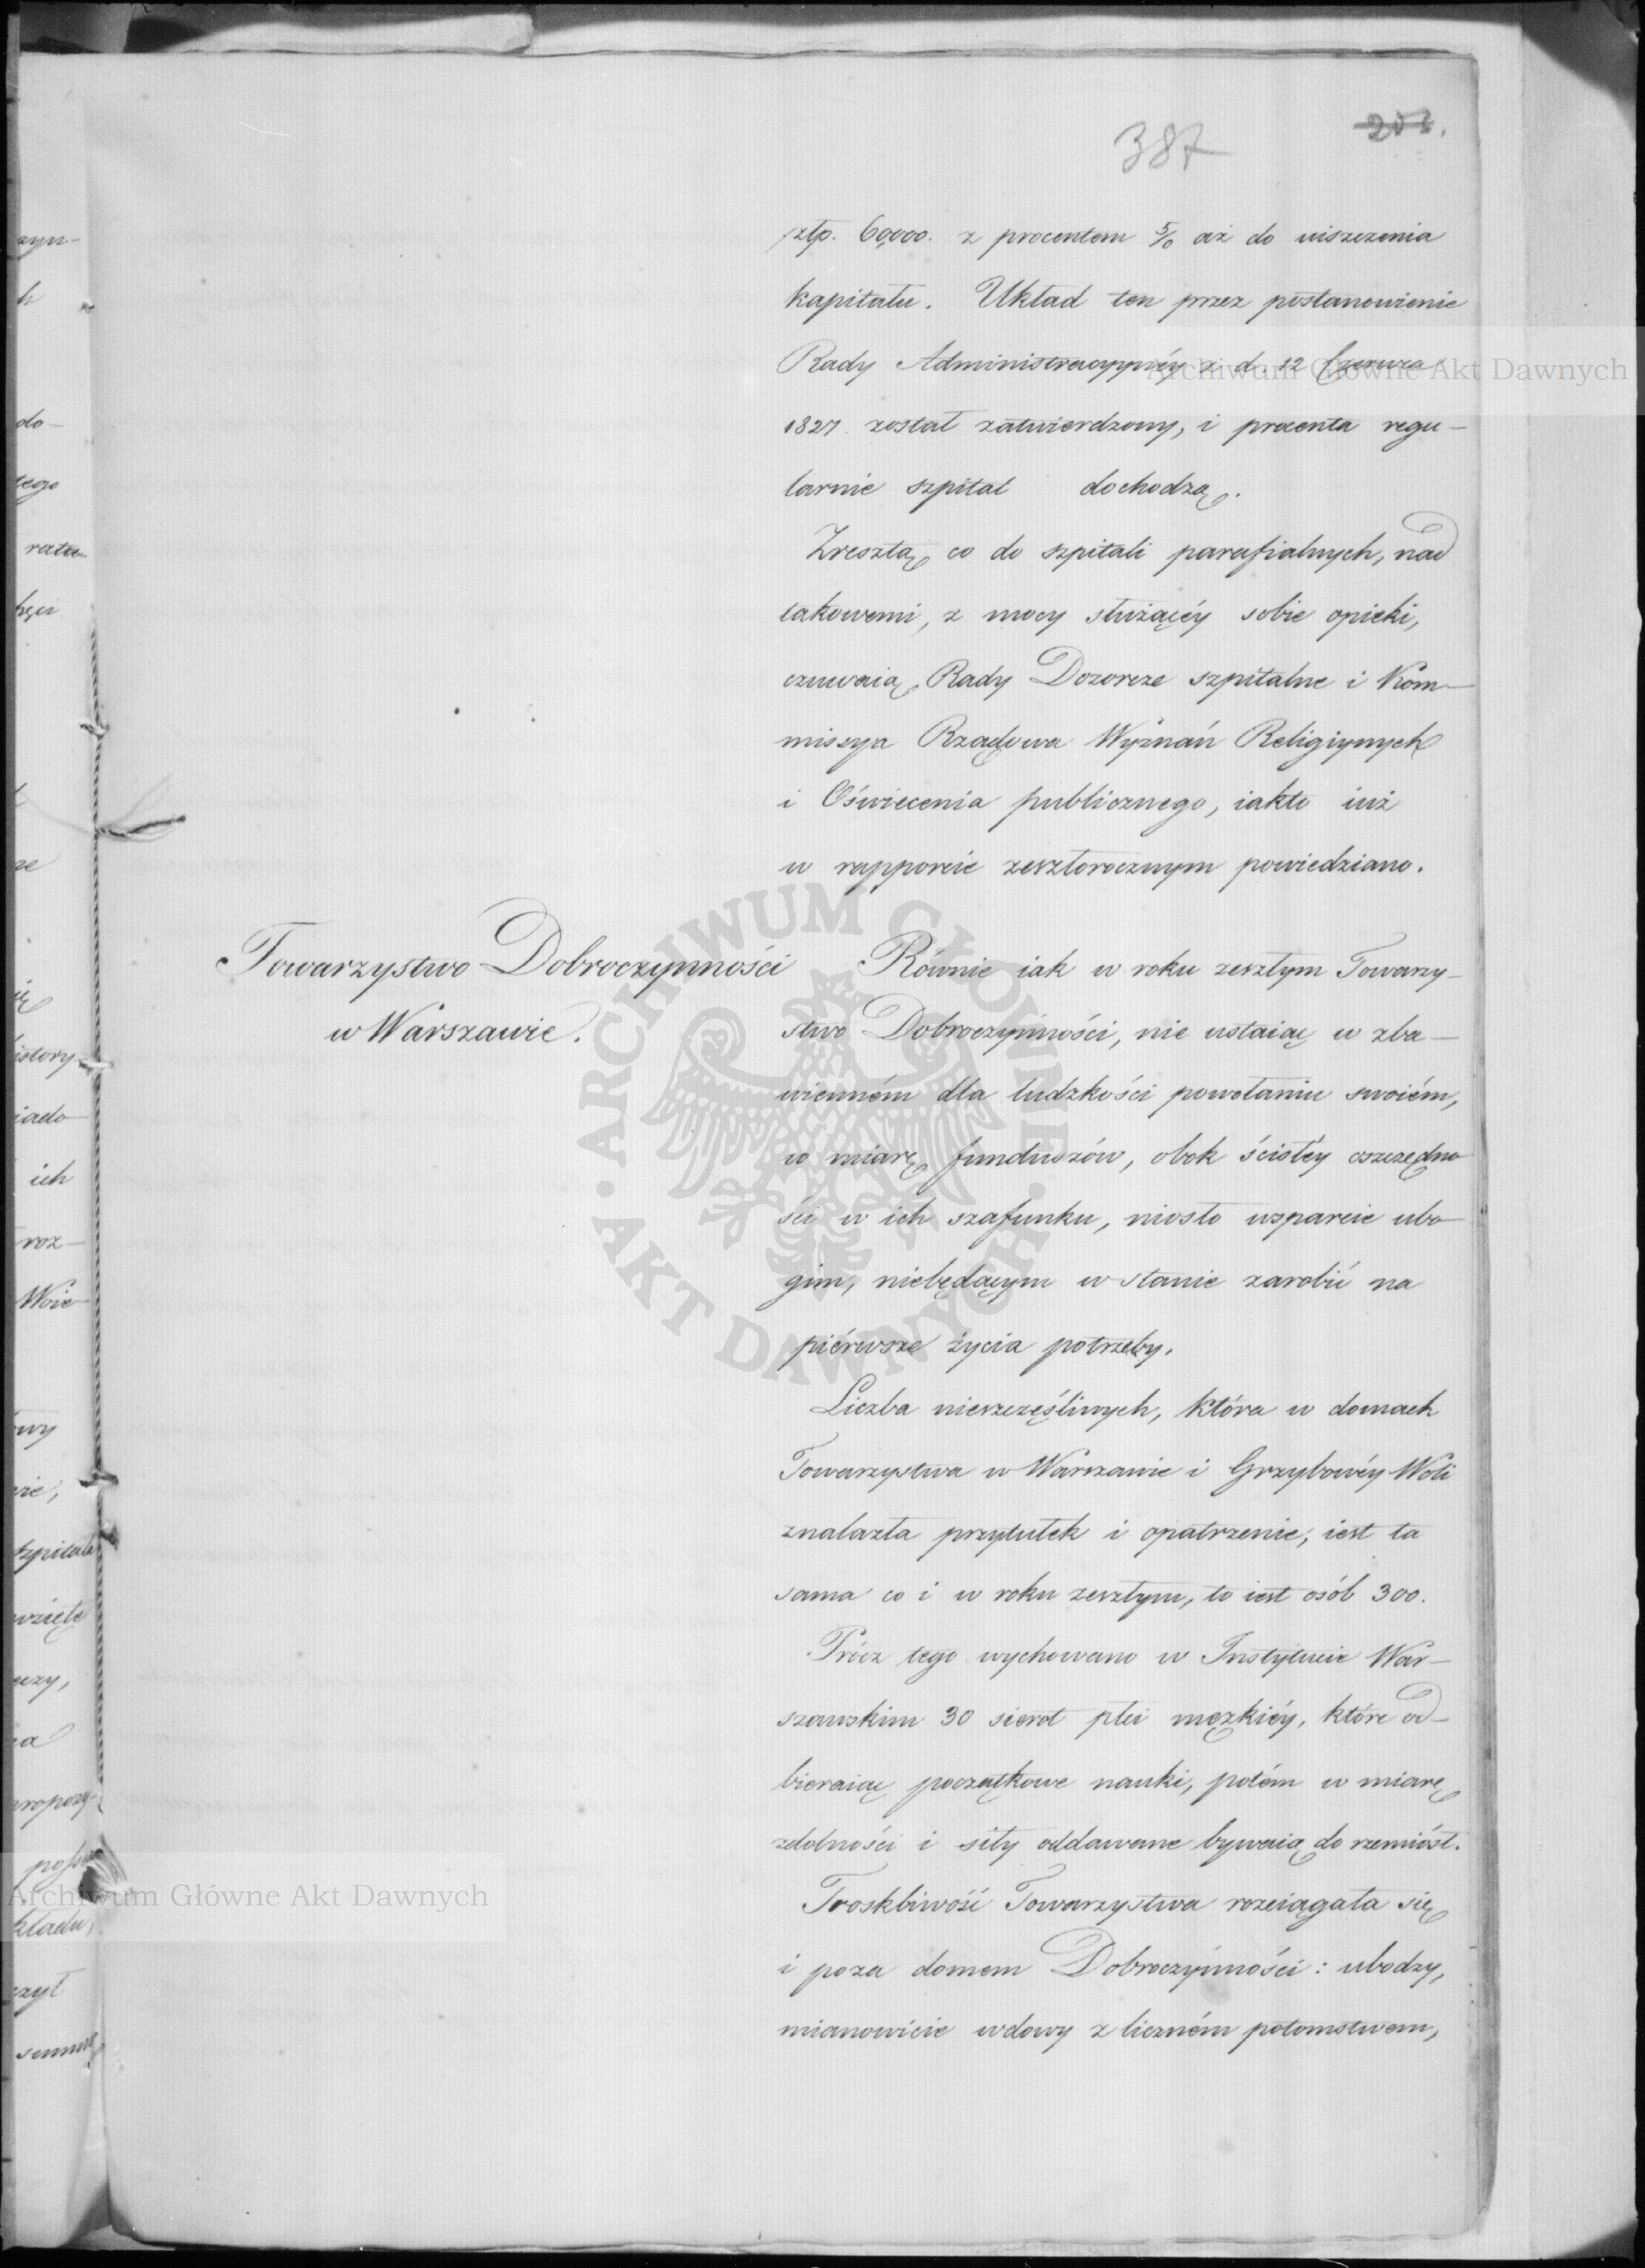 387
złp. 60,000. z procentem 5/0 aż do uiszczenia
kapitału. Układ ten przez postanowienie
Rady Administracyynéy z d. 12 Czerwca
1827 został zatwierdzony, i procenta regu–
larnie szpital dochodzą.
Zresztą co do szpitali parafialnych, nad
takowemi, z mocy służącéy sobie opieki,
czuwaią Rady Dozorcze szpitalne i Kom–
missya Rządowa Wyznań Religiynych
i Oświecenia publicznego, iakto iuż
w rapporcie zeszłorocznym powiedziano.
Towarzystwo Dobroczynności
w Warszawie.
Równie iak w roku zeszłym Towarzy–
stwo Dobroczynności, nie ustaiąc w zba–
wienném dla ludzkości powołaniu swoiém,
w miarę funduszów, obok ścisłéy oszczędno–
ści w ich szafunku, niosło wsparcie ubo–
gim, niebędącym w stanie zarobić na
piérwsze życia potrzeby.
Liczba nieszczęśliwych, która w domach
Towarzystwa w Warszawie i Grzybowéy Woli
znalazła przytułek i opatrzenie, iest ta
sama co i w roku zeszłym, to iest osób 300.
Prócz tego wychowano w Instytucie War–
szawskim 30 sierot płci męzkiéy, które od–
bieraiąc początkowe nauki, potém w miarę
zdolności i siły oddawane bywaią do rzemiósł.
Troskliwość Towarzystwa rozciągała się
i poza domem Dobroczynności: ubodzy,
mianowicie wdowy z liczném potomstwem,
Archiwum Główne Akt Dawnych
ARCHIWUM GŁÓWNE · AKT DAWNYCH ·
Archiwum Główne Akt Dawnych